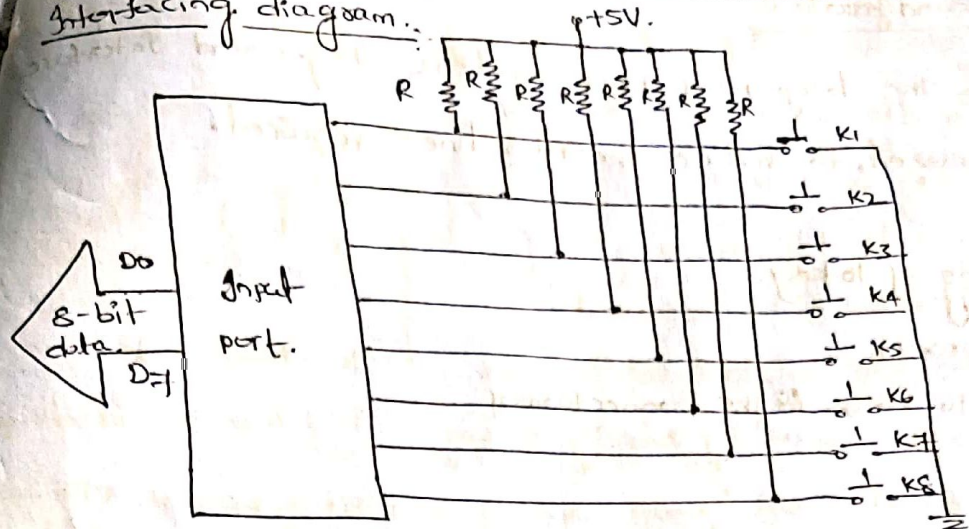 Interfacing diagram:
+5V.
R R R R R R R R
K1
K2
K3
K4
K5
K6
K7
K8
D0
8-bit
data
D7
Input
port.